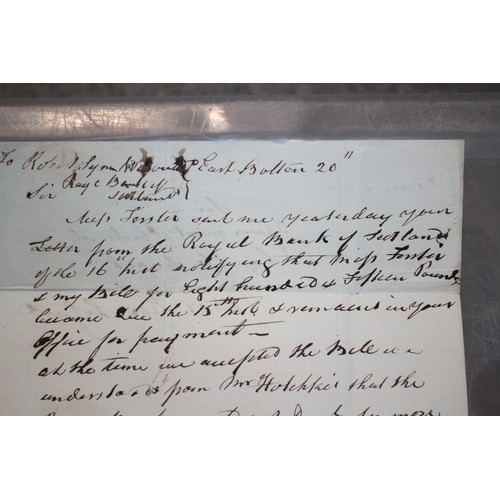 To Robt Sym East Bolton 20"
Royl Bank of
Sir Scotland
Miss Forster sent me yesterday your
Letter from the Royal Bank of Scotland
of the 16" inst notifying that Miss Forster
& my Bill for Eight hundred & Fifteen Pounds
became due the 15th inst & remains in your
Office for payment —
at the time we accepted the Bill we
understood from Mr Hotchkis that the
for more